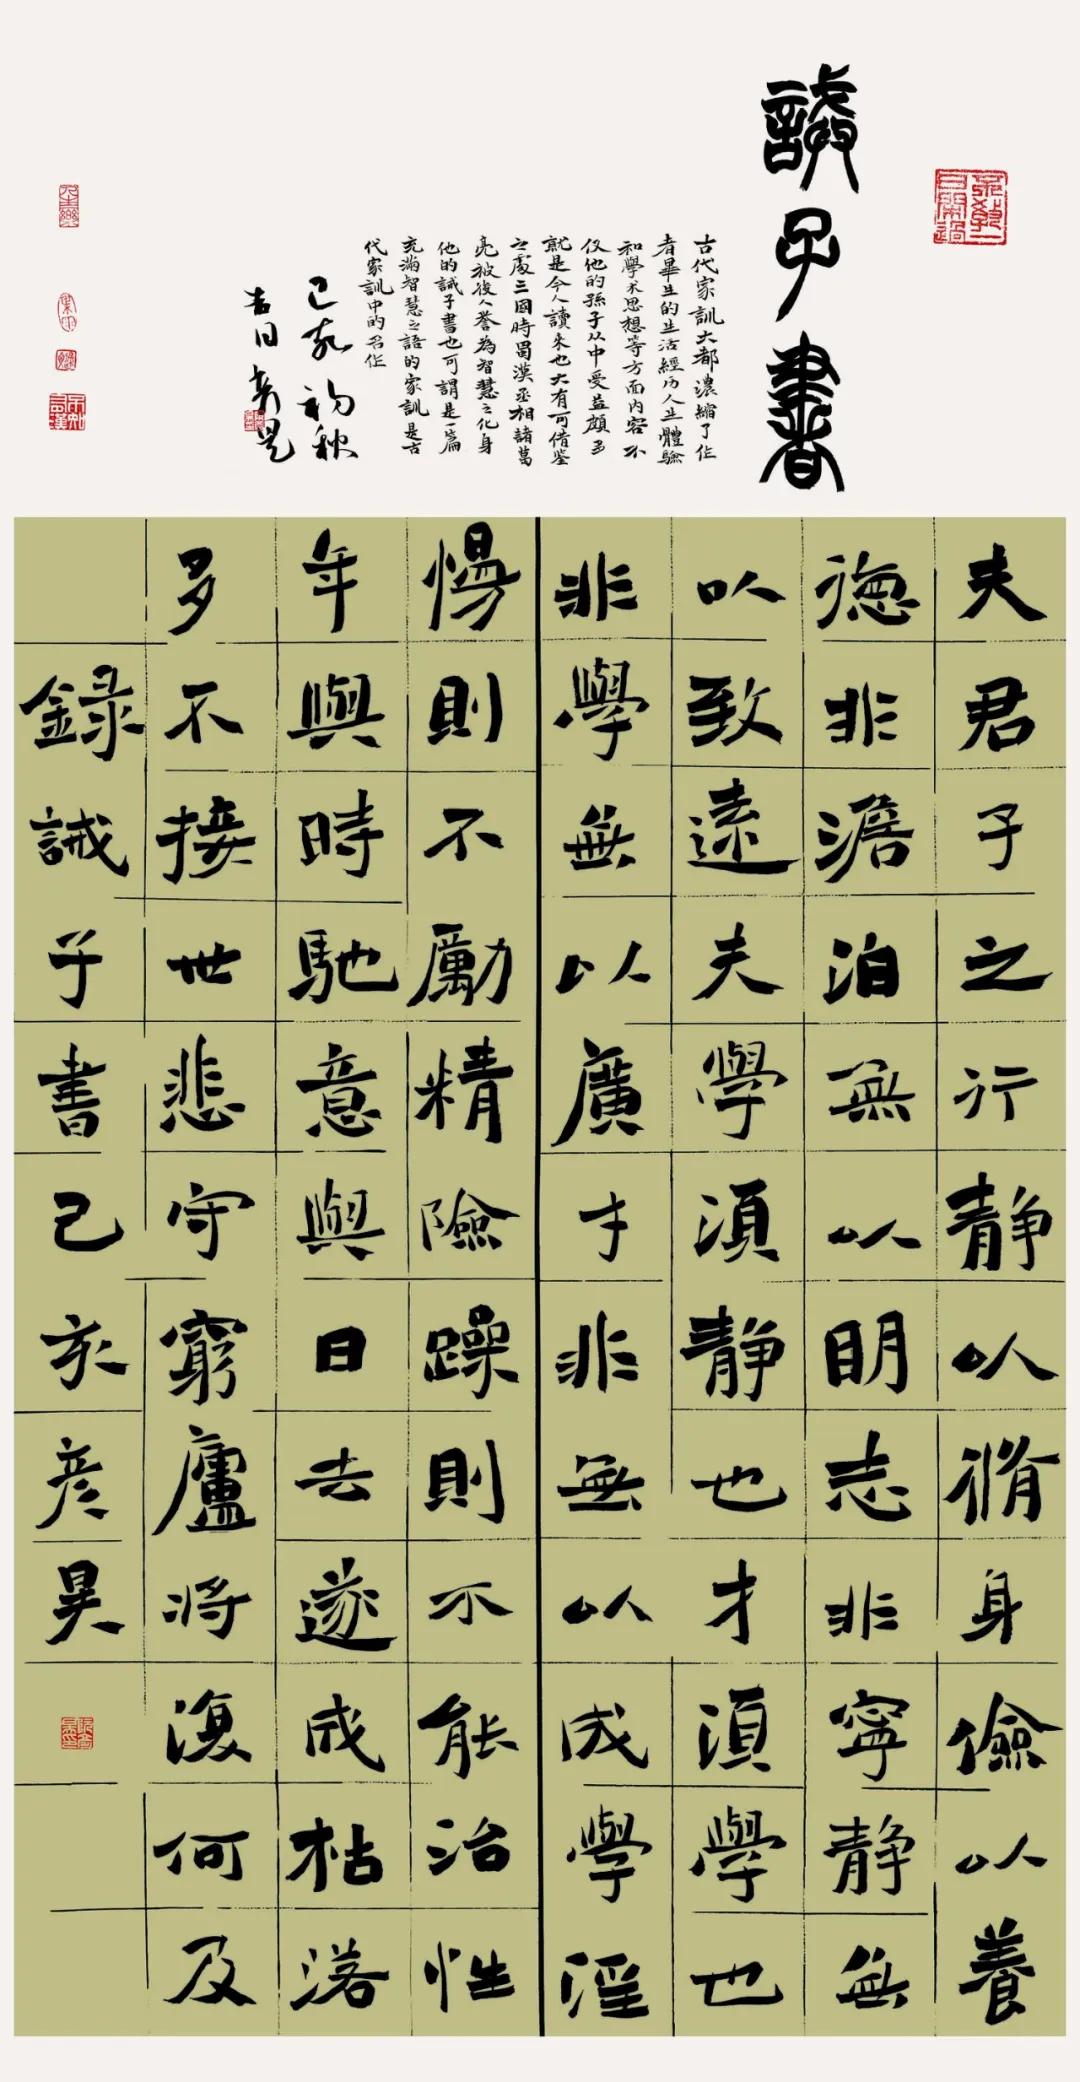 誡子書
古代家訓大都濃縮了作
者畢生的生活經历人生體驗
和學术思想等方面内容不
仅他的孫子从中受益頗多
就是今人讀来也大有可借鉴
之處三國時蜀漢丞相諸葛
亮被後人誉為智慧之化身
他的誡子書也可謂是一篇
充滿智慧之語的家訓是古
代家訓中的名作
己亥初秋
吉日彦昊
夫君子之行静以脩身儉以養
德非澹泊無以明志非寧静無
以致遠夫學須静也才須學也
非學無以廣才非無以成學淫
慢則不勵精險躁則不能治性
年與時馳意與日去遂成枯落
多不接世悲守窮廬將復何及
錄誡子書己亥彦昊